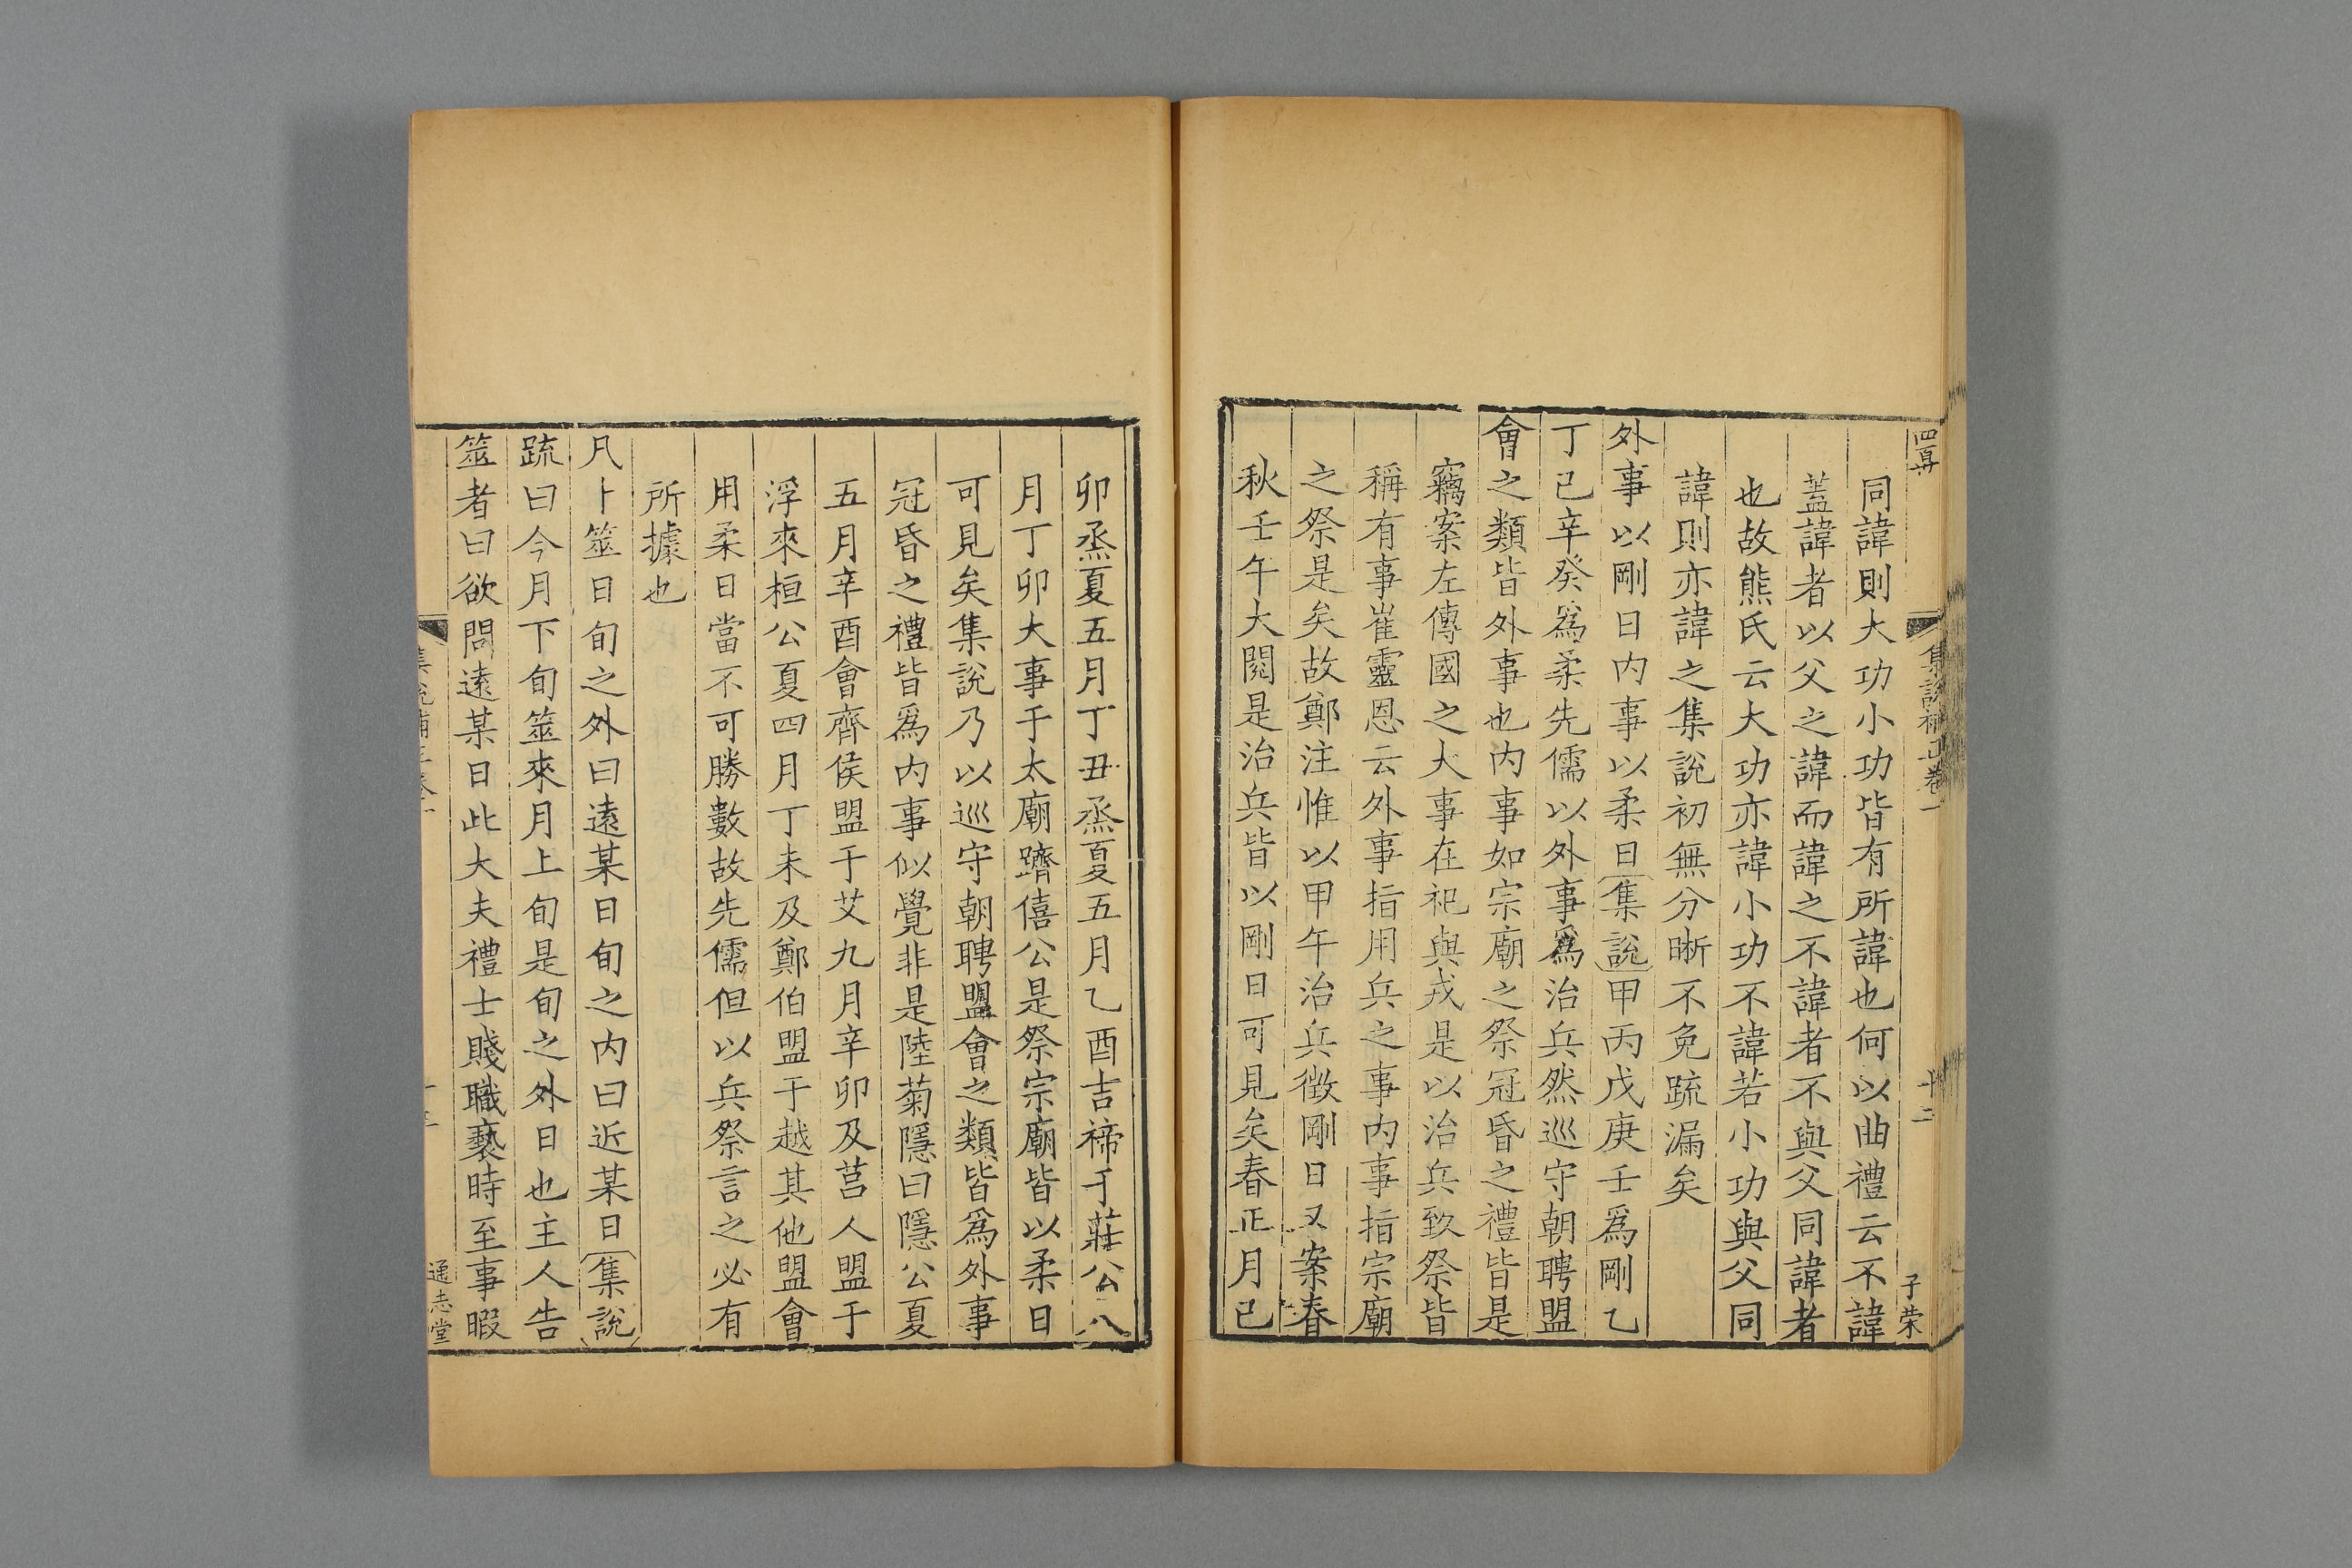 同諱則大功小功皆有所諱也何以曲禮云不諱
蓋諱者以父之諱而諱之不諱者不與父同諱者
也故熊氏云大功亦諱小功不諱若小功與父同
諱則亦諱之集說初無分晣不免疏漏矣
外事以剛日内事以柔日集說甲丙戊庚壬爲剛乙
丁己辛癸爲柔先儒以外事爲治兵然巡守朝聘盟
會之類皆外事也内事如宗廟之祭冠昏之禮皆是
竊案左傳國之大事在祀與戎是以治兵致祭皆
稱有事崔靈恩云外事指用兵之事内事指宗廟
之祭是矣故鄭注惟以甲午治兵徵剛日又案春
秋壬午大閱是治兵皆以剛日可見矣春正月己
集說補正卷一
十二
子荣
卯烝夏五月丁丑烝夏五月乙酉吉禘于莊公八
月丁卯大事于太廟躋僖公是祭宗廟皆以柔日
可見矣集說乃以巡守朝聘盟會之類皆爲外事
冠昏之禮皆爲内事似覺非是陸菊隱曰隱公夏
五月辛酉會齊侯盟于艾九月辛卯及莒人盟于
浮來桓公夏四月丁未及鄭伯盟于越其他盟會
用柔日當不可勝數故先儒但以兵祭言之必有
所據也
凡卜筮日旬之外曰遠某日旬之内曰近某日集說
疏曰今月下旬筮來月上旬是旬之外日也主人告
筮者曰欲問遠某日此大夫禮士賤職褻時至事暇
通志堂